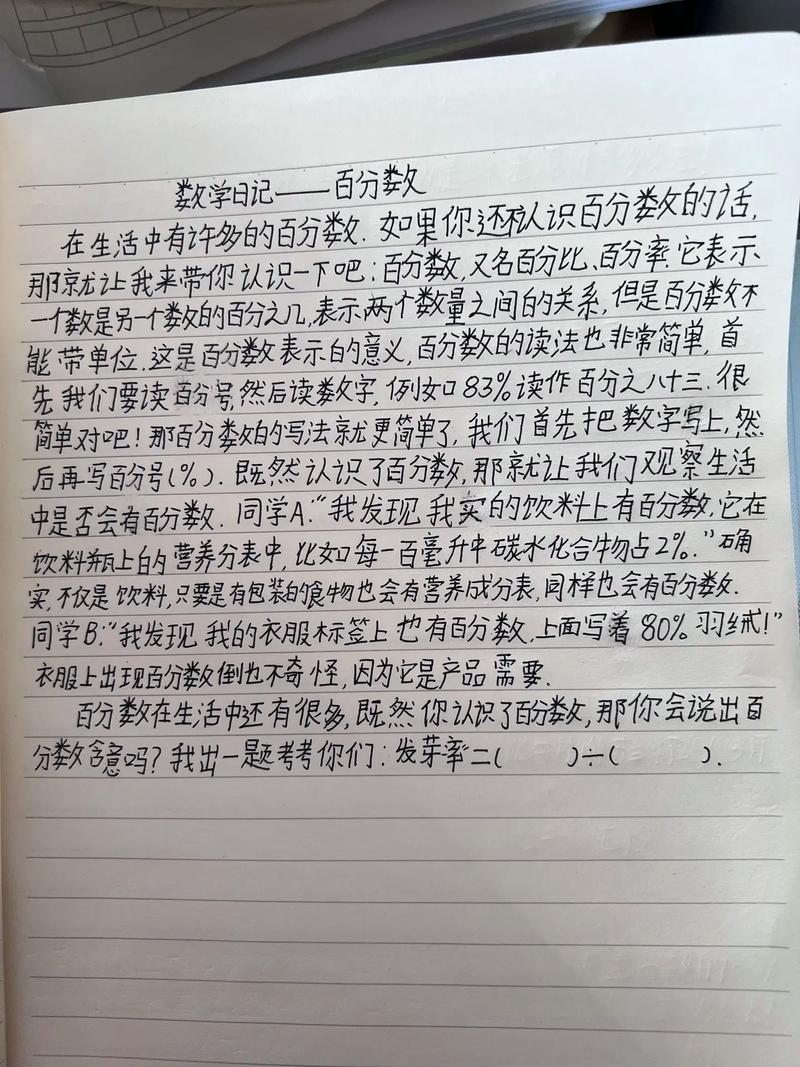 数学日记——百分数
在生活中有许多的百分数. 如果你还不认识百分数的话,
那就让我来带你认识一下吧: 百分数, 又名百分比、百分率. 它表示
一个数是另一个数的百分之几, 表示两个数量之间的关系, 但是百分数不
能带单位. 这是百分数表示的意义, 百分数的读法也非常简单, 首
先我们要读百分号, 然后读数字, 例如83%读作百分之八十三. 很
简单对吧! 那百分数的写法就更简单了, 我们首先把数字写上, 然
后再写百分号(%). 既然认识了百分数, 那就让我们观察生活
中是否会有百分数. 同学A:“我发现我买的饮料上有百分数, 它在
饮料瓶上的营养分表中, 比如每一百毫升中碳水化合物占2%.”确
实, 不仅是饮料, 只要是有包装的食物也会有营养成分表, 同样也会有百分数.
同学B:“我发现我的衣服标签上也有百分数, 上面写着80%羽绒!”
衣服上出现百分数倒也不奇怪, 因为它是产品需要.
百分数在生活中还有很多, 既然你认识了百分数, 那你会说出百
分数含意吗? 我出一题考考你们: 发芽率=( )÷( ).